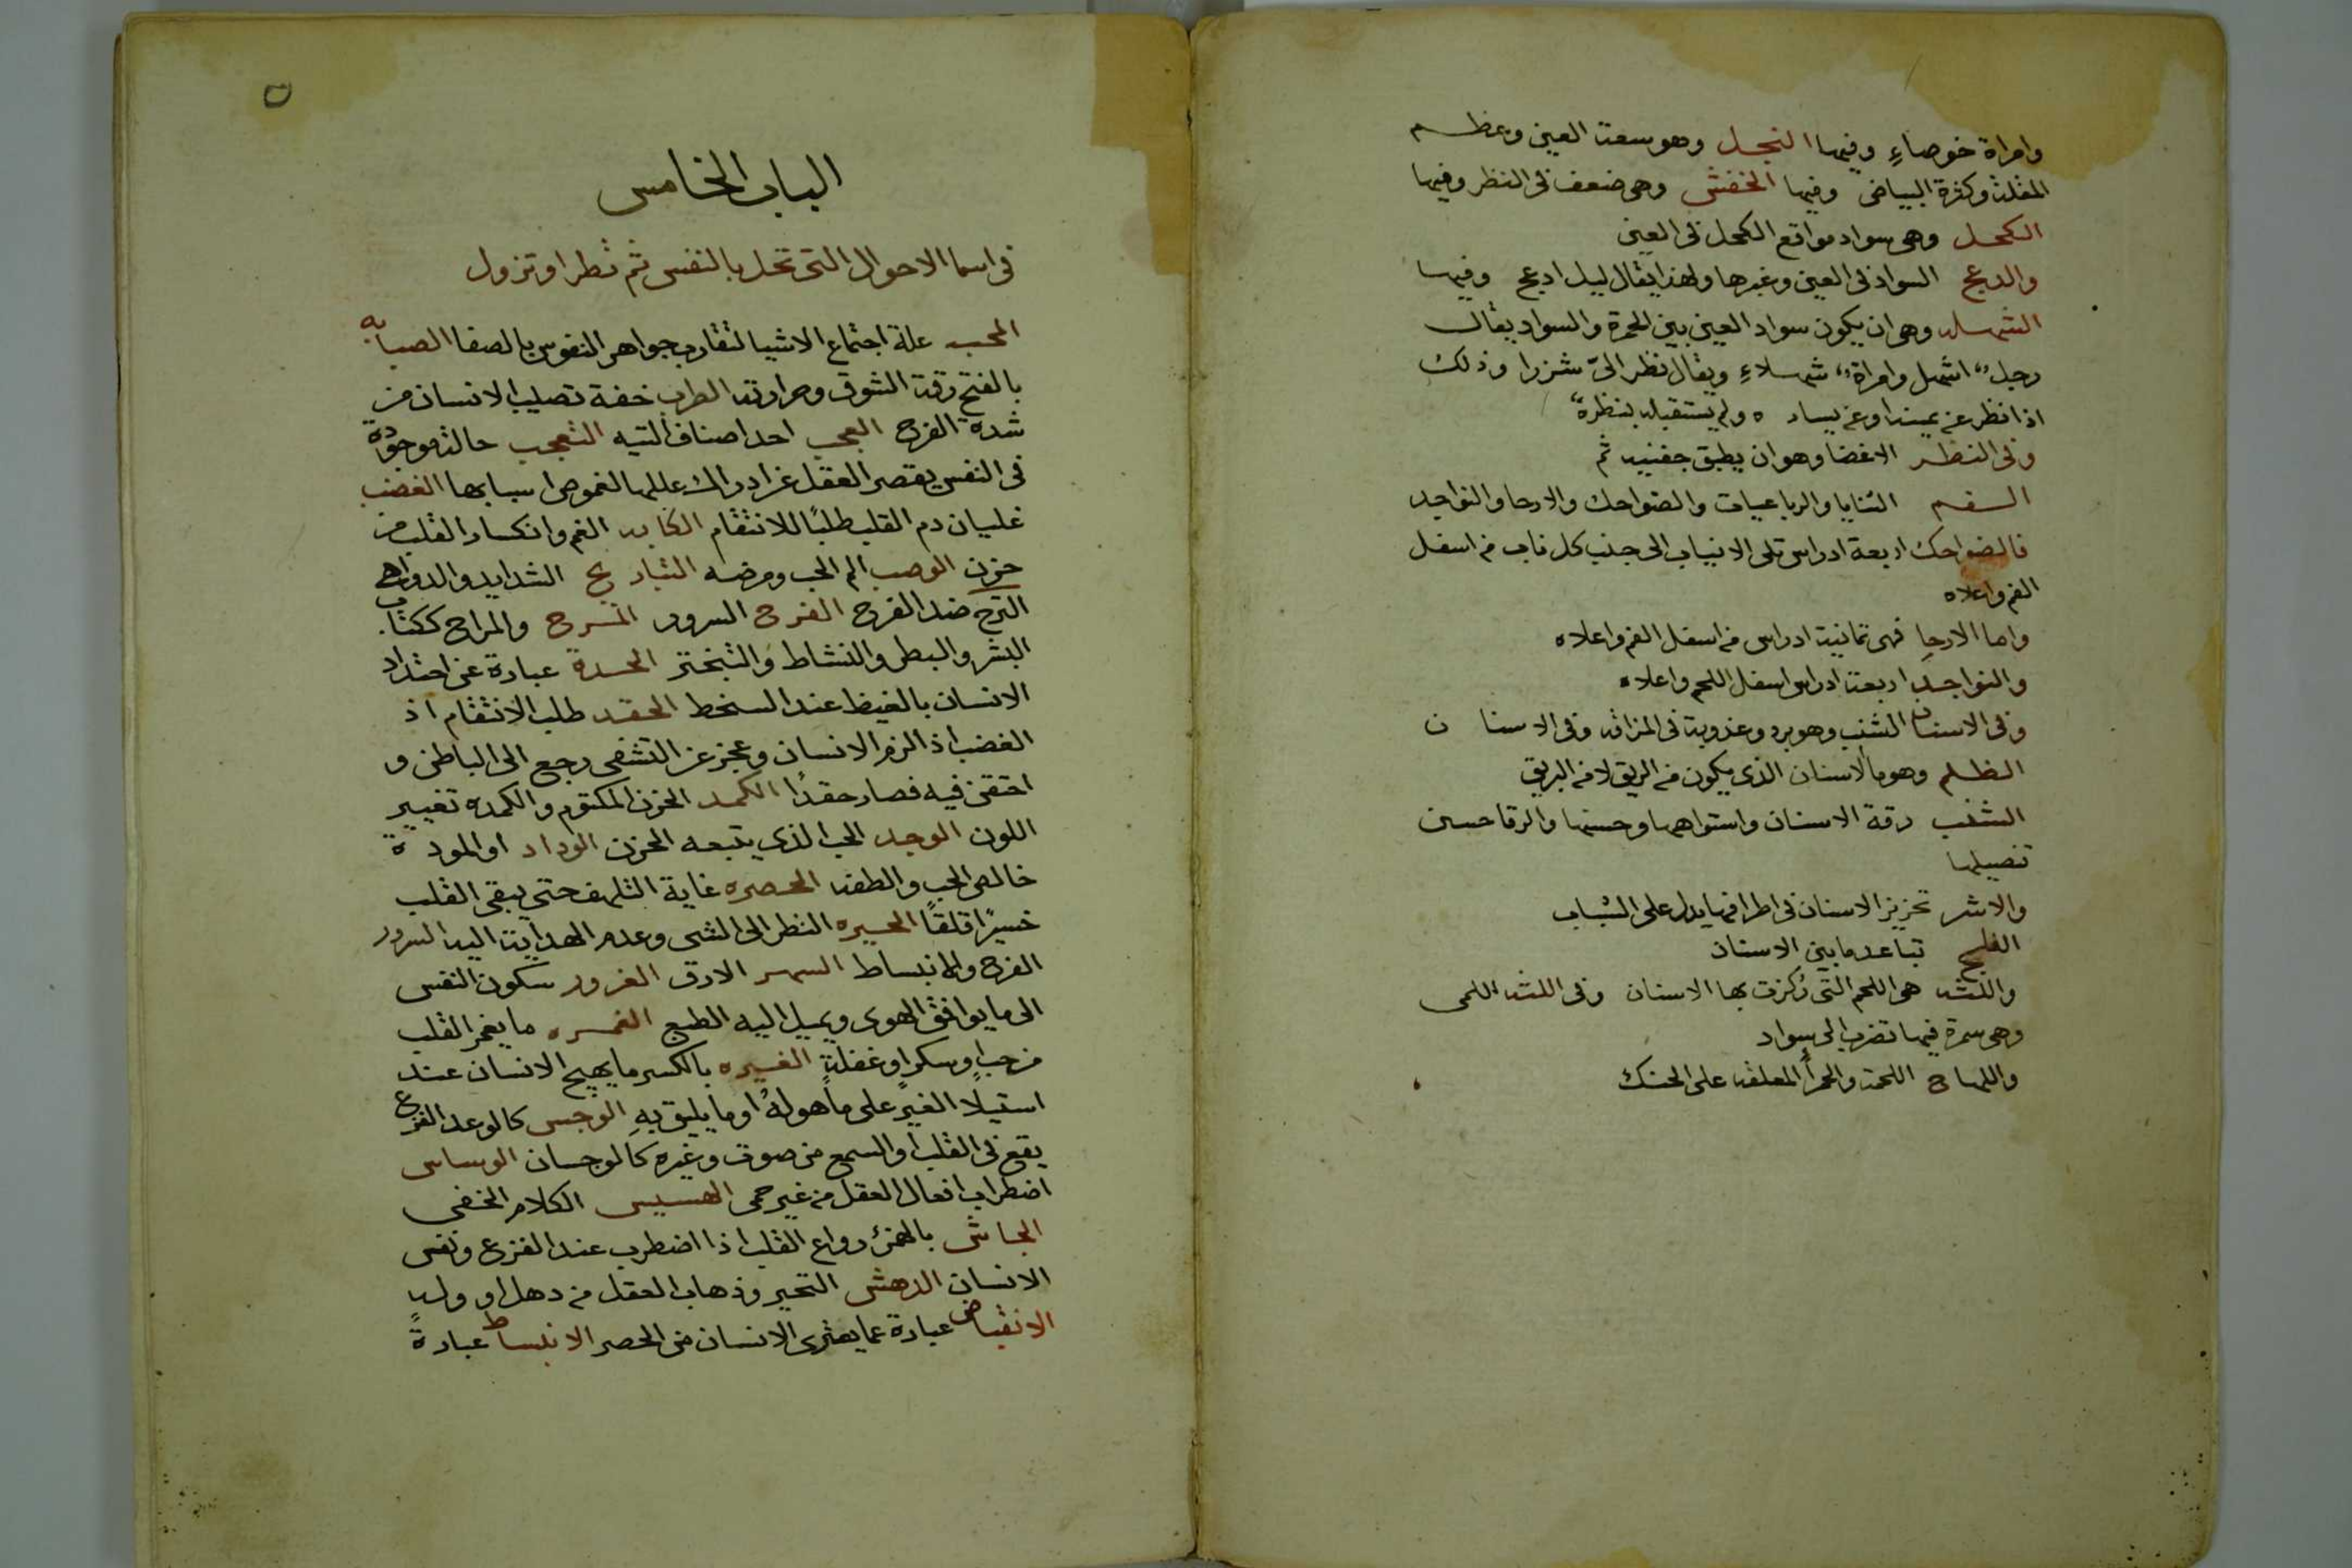 وامراة خوصاءِ وفيها النجل وهو سعة العين وعظم
المقلة وكثرة البياض وفيها الخفش وهى ضعف فى النظر وفيها
الكحل وهى سواد مواقع الكحل فى العين
والدعج السواد فى العين وغيرها ولهذا يقال ليل ادعج وفيها
الشهله وهى ان يكون سواد العين بين الحمرة والسواد يقال
رجل اشهل وامراة شهلاءِ ويقال نظر الىّ شزرا وذلك
اذا نظر عن يمينه او عن يساره ولم يستقبله بنظرة
وفى النظر الاغضا وهو ان يطبق جفنيه ثم
السفم الثنايا والرباعيات والضواحك والارحا والنواجد
فالضواحك اربعة ادراس تلى الانياب الى جنب كل ناب من اسفل
الفم واعلاه
واما الارحا فهى ثمانية ادراس من اسفل الفم واعلاه
والنواجد اربعة ادراس اسفل اللحم واعلاه
وفى الاسنان الشنب وهو برد وعذوبة فى المزاقه وفى الاسنا ن
الظلم وهو ما الاسنان الذى يكون من الريق لا من البريق
الشنب رقة الاسنان واستواهها وحسنها والرقا حسن
تنصيلها
والاشر تحزيز الاسنان فى اطرافها يدل على الشباب
الفلج تباعد ما بين الاسنان
واللثه هى اللحم التى رُكزت بها الاسنان وفى اللثه اللمى
وهى سمرة فيها تضرب الى سواد
واللهاح اللحمة والحمرأ المعلقه على الحنك
ن
الباب الخامس
فى اسما الاحوال التى تحل بالنفس ثم تطرا وتزول
المحبه علة اجتماع الاشيا لتقارب جواهر النفوس بالصفا الصبابه
بالفتح رقة الشوق وحرارته الطرب خفة تصيب الانسان من
شدة الفرح العجب احد اصناف التيه التعجب حالة موجودة
فى النفس يقصر العقل عن ادراك عللها لغموض اسبابها الغضب
غليان دم القلب طلبًا للانتقام الكابه الغم وانكسار القلب من
حزن الوصب الم الحب ومرضه التباريح الشدايد والدواهى
الترح ضد الفرح الفرح السرور المرح والمراح ككتاب
البشر والبطر والنشاط والتبختر الحدة عبارة عن احتداد
الانسان بالغيظ عند السخط الحقد طلب الانتقام اذ
الغضب اذا لزم الانسان وعجز عن التشفى رجع الى الباطن و
احتقن فيه فصار حقدًا الكمد الحزن المكتوم والكمده تغيير
اللون الوجد الحب الذى يتبعه الحزن الوداد او المودة
خالص الحب والطفه الحصره غاية التلهف حتى يبقى القلب
خسيرًا قلقًا الحيره النظر الى الشى وعدم الهداية اليه السرور
الفرح والانبساط السهر الارق الغرور سكون النفس
الى ما يوافق الهوى ويميل اليه الطبع الغمره ما يغمر القلب
من حبٍ او سكرٍ او غفلةٍ الغيره بالكسر ما يهيج الانسان عند
استيلا الغير على ما هو لهُ او ما يليق بهِ الوجس كالوعد الفزع
يقع فى القلب او السمع من صوت وغيره كالوجسان الوساس
اضطراب افعال العقل من غير حمى الهسيس الكلام الخفى
الجاش بالهمز رواع القلب اذا اضطرب عند الفزع ونفس
الانسان الدهش التحير وذهاب العقل من دهل او ولهٍ
الانقباض عبارة عما يعترى الانسان من الحصر الانبساط عبارةً